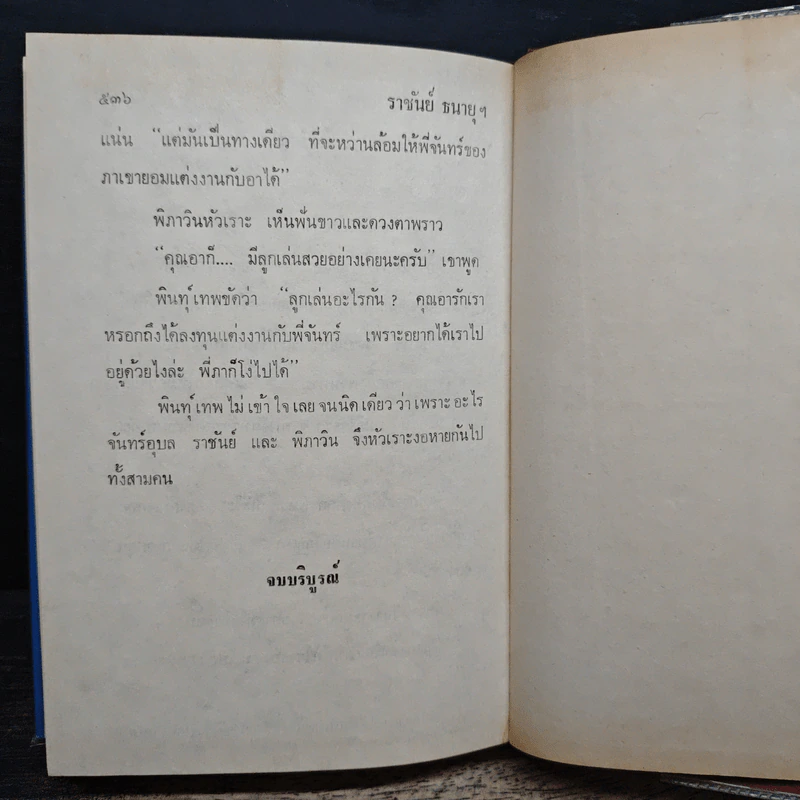 ๕๓๖ ราชันย์ ธนายุฯ
แน่น “แต่มันเป็นทางเดียว ที่จะหว่านล้อมให้พี่จันทร์ของ
ภาเขายอมแต่งงานกับอาได้”
พิภาวินหัวเราะ เห็นฟันขาวและดวงตาพราว
“คุณอาก็.... มีลูกเล่นสวยอย่างเคยนะครับ” เขาพูด
พินทุ์เทพขัดว่า “ลูกเล่นอะไรกัน ? คุณอารักเรา
หรอกถึงได้ลงทุนแต่งงานกับพี่จันทร์ เพราะอยากได้เราไป
อยู่ด้วยไงล่ะ พี่ภาก็โง่ไปได้”
พินทุ์เทพไม่เข้าใจเลยจนนิดเดียวว่าเพราะอะไร
จันทร์อุบล ราชันย์ และ พิภาวิน จึงหัวเราะงอหายกันไป
ทั้งสามคน
จบบริบูรณ์